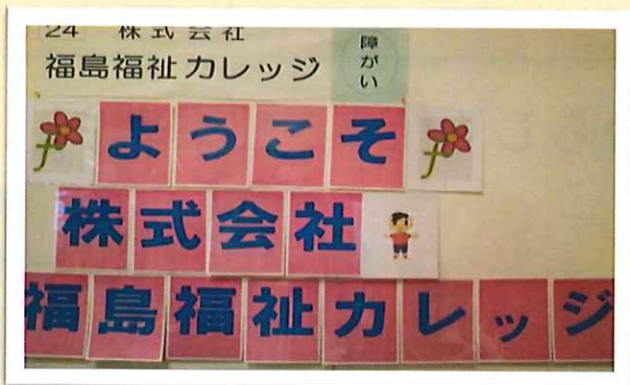 24 株式会社
福島福祉カレッジ
障がい
ようこそ
株式会社
福島福祉カレッジ